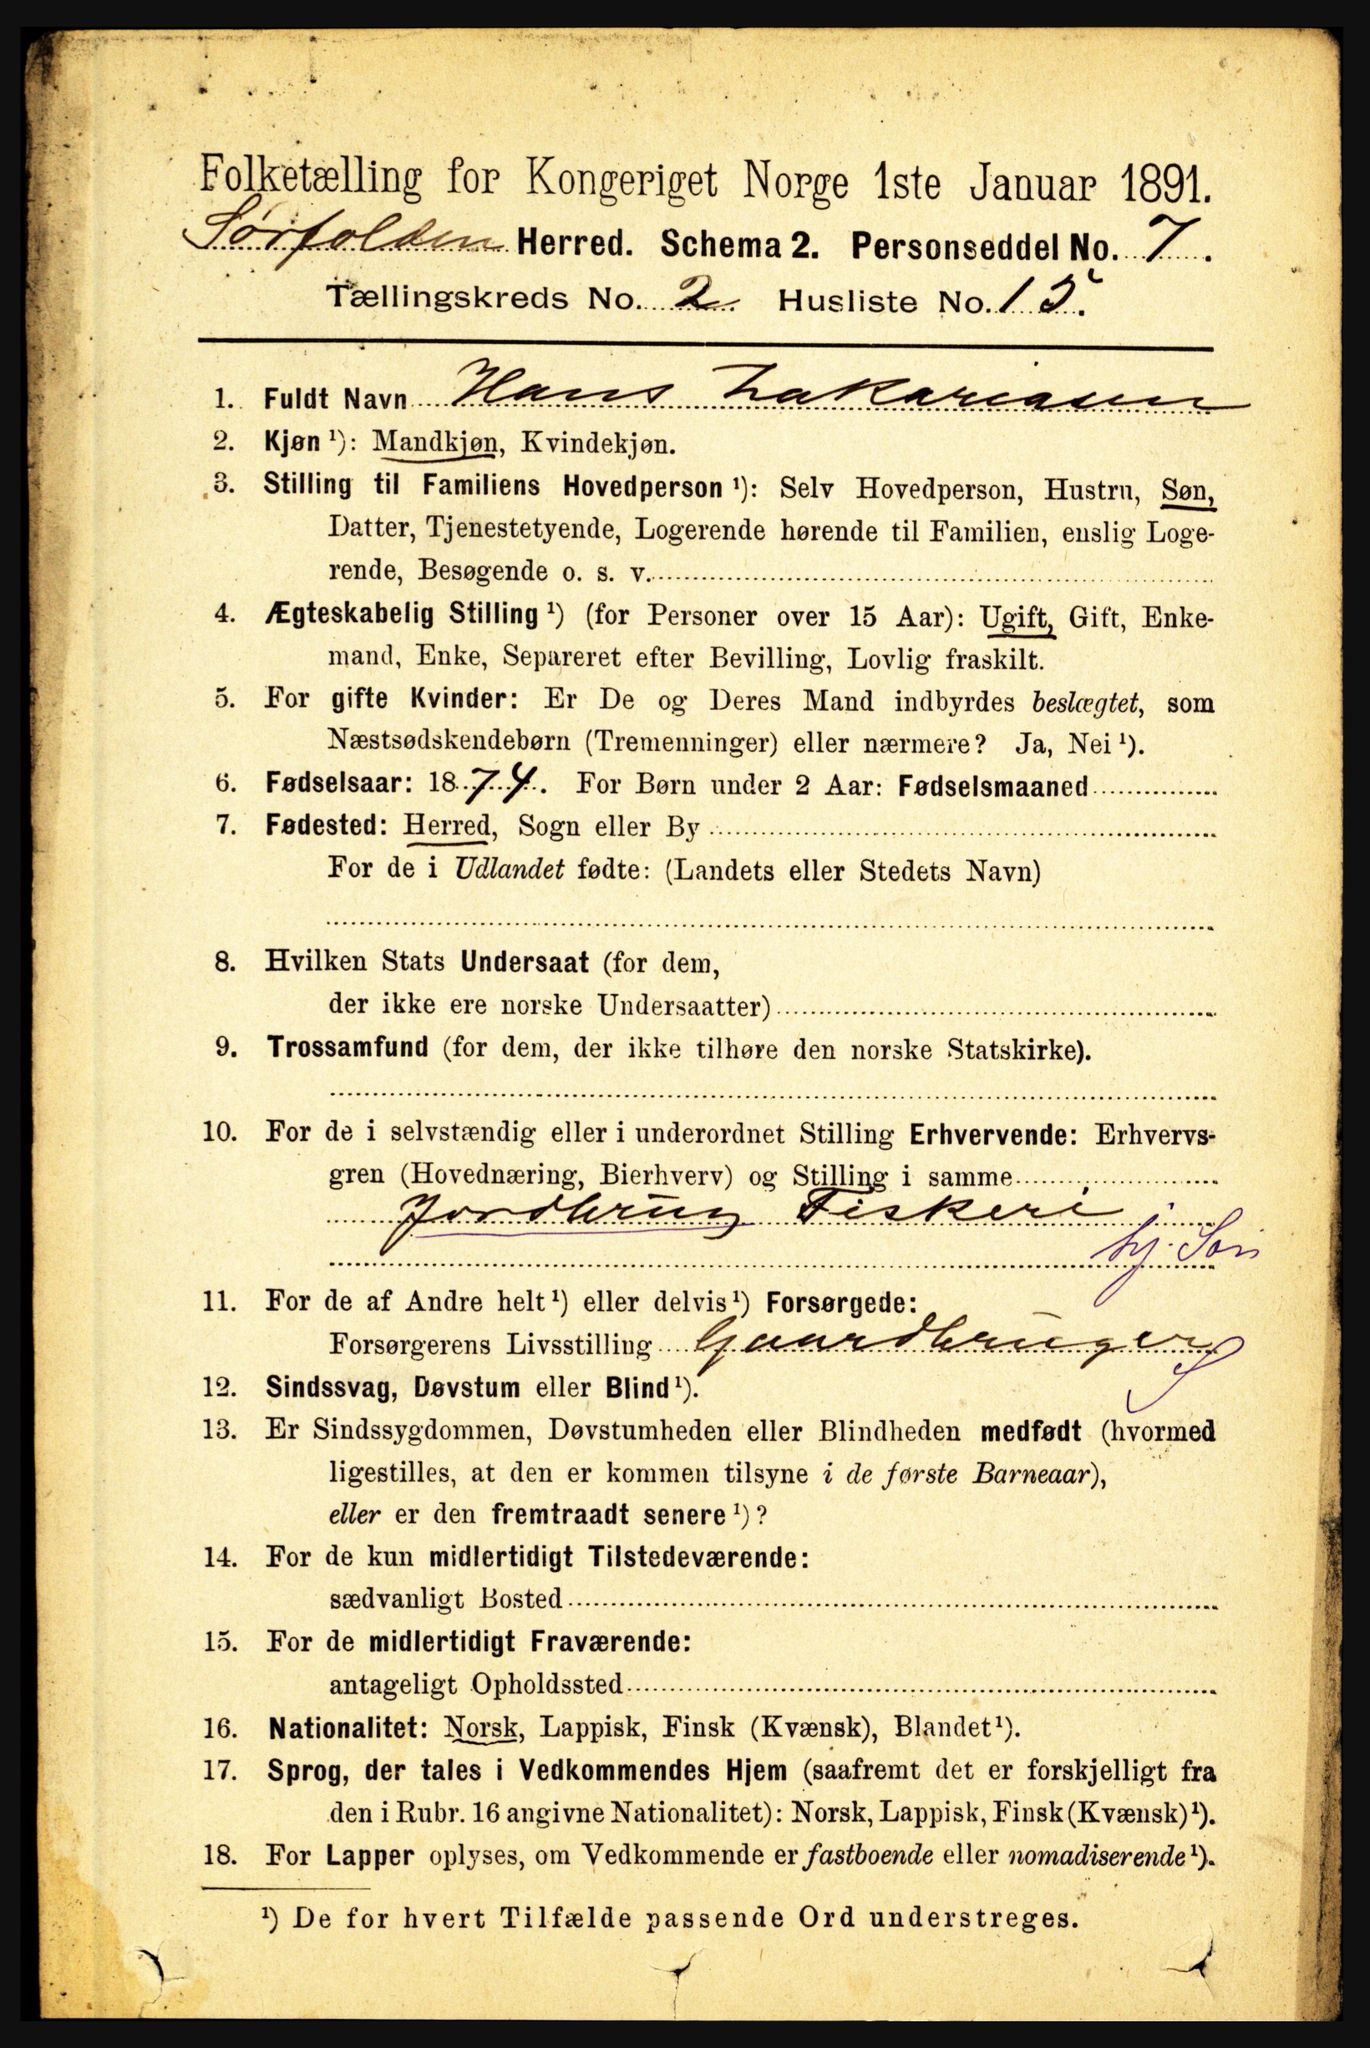 Folketælling for Kongeriget Norge 1ste Januar 1891.
Sørfolden Herred. Schema 2. Personseddel No. 7.
Tællingskreds No. 2. Husliste No. 15.
1. Fuldt Navn Hans Zakariasen
2. Kjøn ¹): Mandkjøn, Kvindekjøn.
3. Stilling til Familiens Hovedperson ¹): Selv Hovedperson, Hustru, Søn,
Datter, Tjenestetyende, Logerende hørende til Familien, enslig Loge-
rende, Besøgende o. s. v.
4. Ægteskabelig Stilling ¹) (for Personer over 15 Aar): Ugift, Gift, Enke-
mand, Enke, Separeret efter Bevilling, Lovlig fraskilt.
5. For gifte Kvinder: Er De og Deres Mand indbyrdes beslægtet, som
Næstsødskendebørn (Tremenninger) eller nærmere? Ja, Nei ¹).
6. Fødselsaar: 1874. For Børn under 2 Aar: Fødselsmaaned
7. Fødested: Herred, Sogn eller By
For de i Udlandet fødte: (Landets eller Stedets Navn)
8. Hvilken Stats Undersaat (for dem,
der ikke ere norske Undersaatter)
9. Trossamfund (for dem, der ikke tilhøre den norske Statskirke).
10. For de i selvstændig eller i underordnet Stilling Erhvervende: Erhvervs-
gren (Hovednæring, Bierhverv) og Stilling i samme
Jordbrug Fiskeri
hj. Søn
11. For de af Andre helt ¹) eller delvis ¹) Forsørgede:
Forsørgerens Livsstilling Gaardbruger
S
12. Sindssvag, Døvstum eller Blind ¹).
13. Er Sindssygdommen, Døvstumheden eller Blindheden medfødt (hvormed
ligestilles, at den er kommen tilsyne i de første Barneaar),
eller er den fremtraadt senere ¹)?
14. For de kun midlertidigt Tilstedeværende:
sædvanligt Bosted
15. For de midlertidigt Fraværende:
antageligt Opholdssted
16. Nationalitet: Norsk, Lappisk, Finsk (Kvænsk), Blandet ¹).
17. Sprog, der tales i Vedkommendes Hjem (saafremt det er forskjelligt fra
den i Rubr. 16 angivne Nationalitet): Norsk, Lappisk, Finsk (Kvænsk) ¹).
18. For Lapper oplyses, om Vedkommende er fastboende eller nomadiserende ¹).
¹) De for hvert Tilfælde passende Ord understreges.